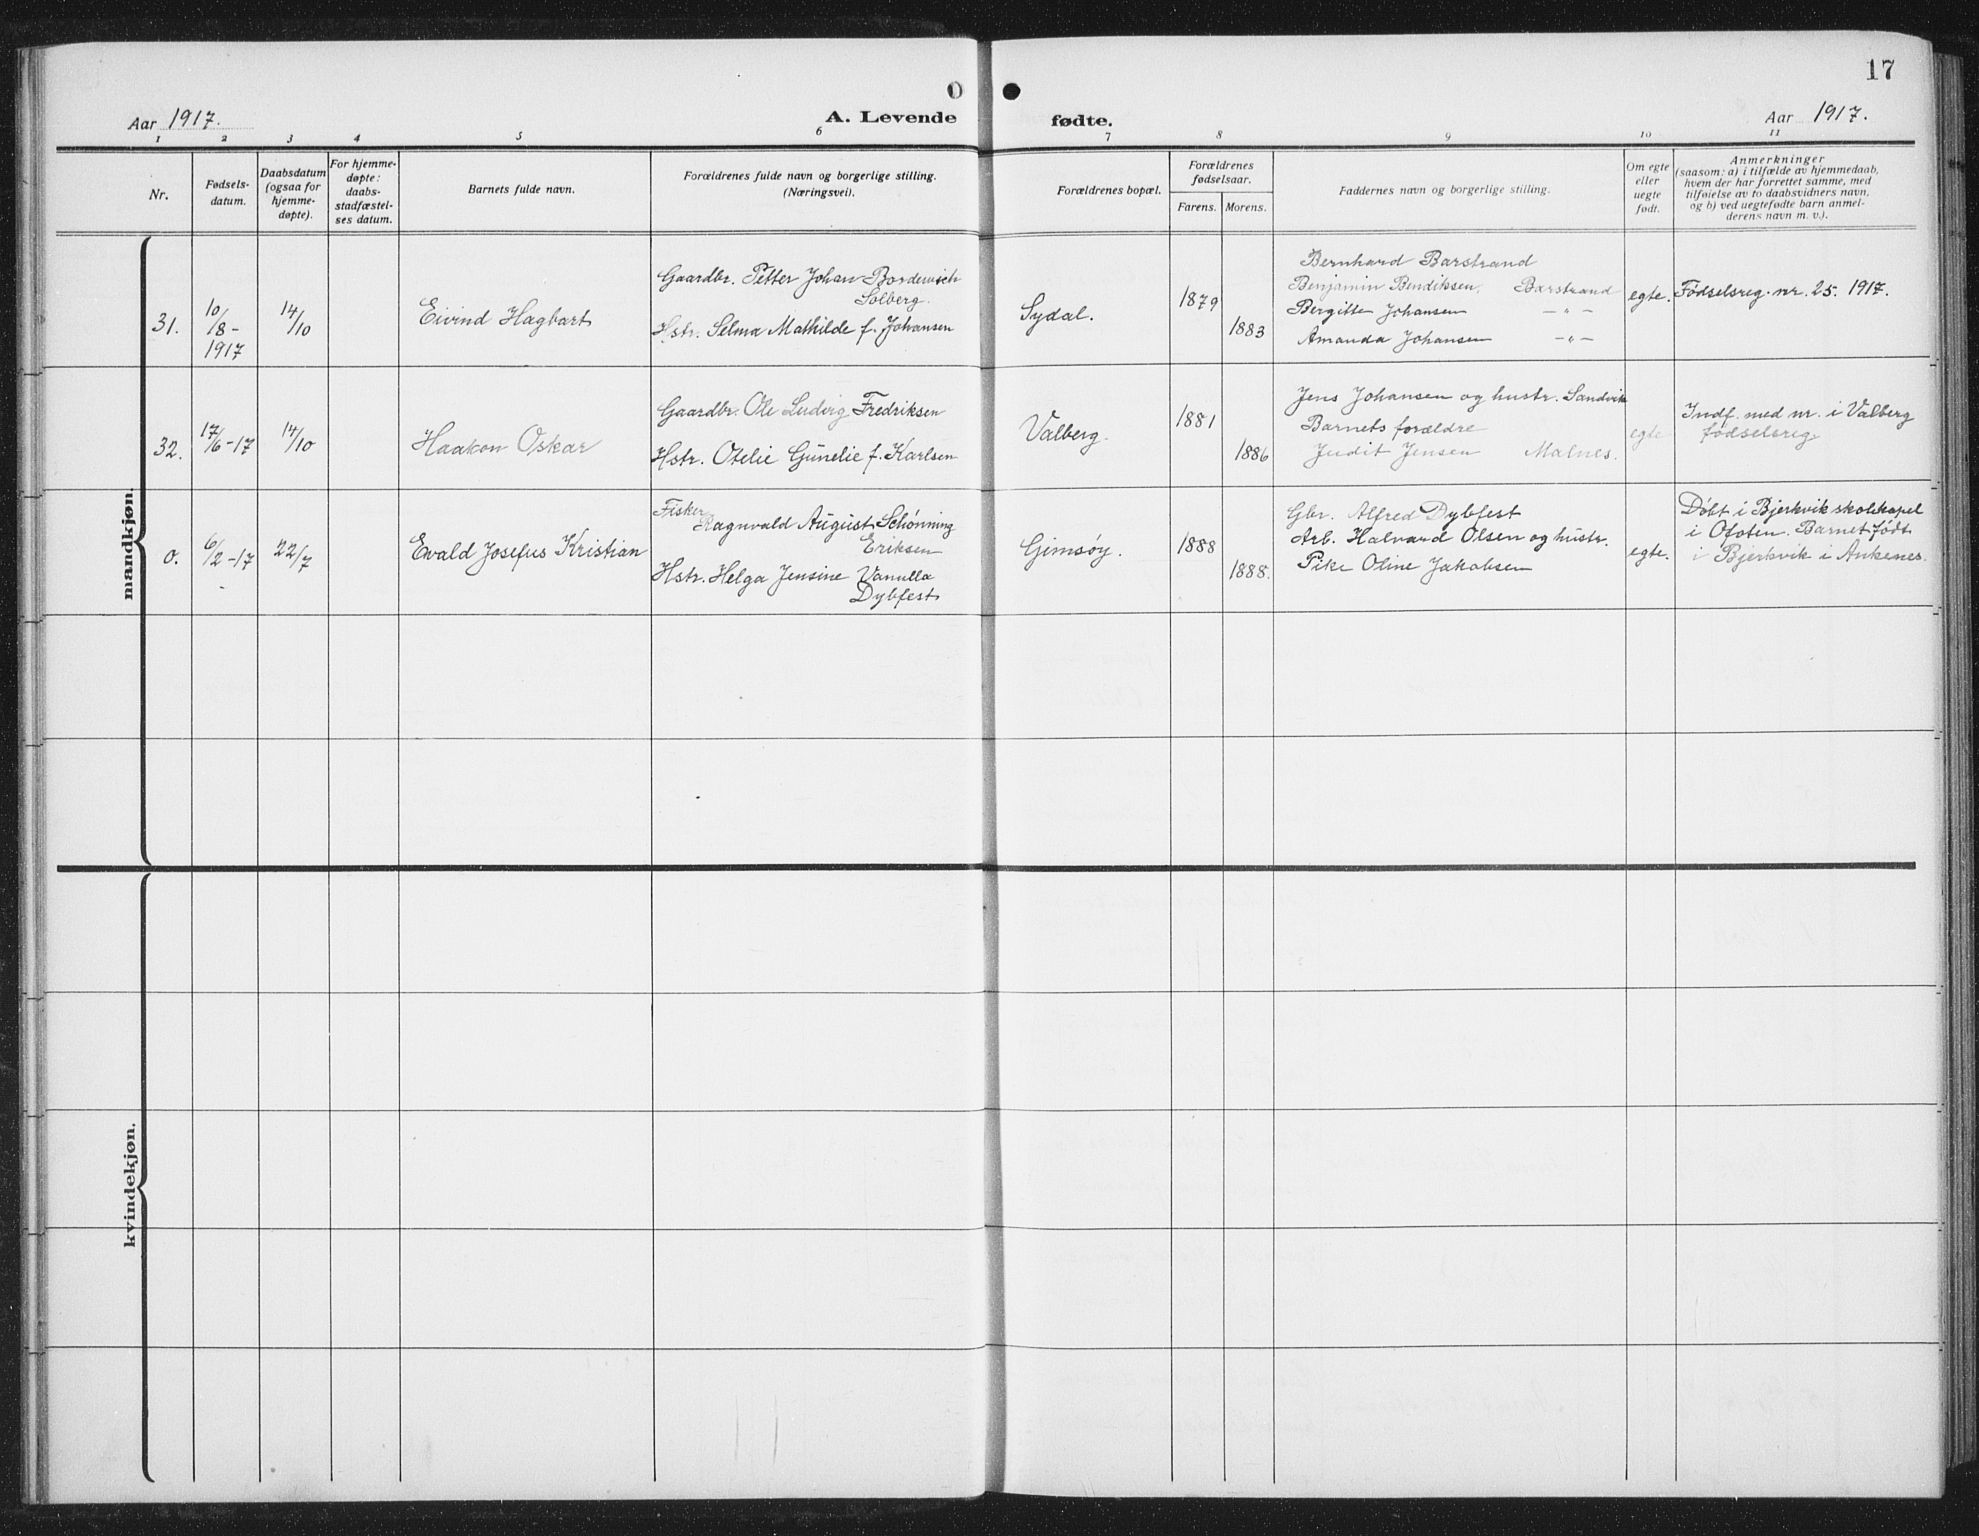 17
Aar 1917.
A. Levende fødte.
Aar 1917.
1 2 3 4 5 6 7 8 9 10 11
Nr.
Fødsels-
datum.
Daabsdatum
(ogsaa for
hjemme-
døpte).
For hjemme-
døpte:
daabs-
stadfæstel-
ses datum.
Barnets fulde navn.
Forældrenes fulde navn og borgerlige stilling.
(Næringsvei).
Forældrenes bopæl.
Forældrenes
fødselsaar.
Farens. Morens.
Faddernes navn og borgerlige stilling.
Om egte
eller
uegte
født.
Anmerkninger
(saasom: a) i tilfælde av hjemmedaab,
hvem der har forrettet samme, med
tilføielse av to daabsvidners navn,
og b) ved uegtefødte barn anmel-
derens navn m. v.).
mandkjøn.
31.
10/8-
1917
14/10
Eivind Hagbart
Gaardbr. Petter Johan Bordewich
Solberg.
Hstr. Selma Mathilde f. Johansen
Sydal.
1879
1883
Bernhard Barstrand
Benjamin Bendiksen. Barstrand
Bergitte Johansen — " —
Amanda Johansen — " —
egte.
Fødselsreg. nr. 25. 1917.
32.
17/6-17
14/10
Haakon Oskar
Gaardbr. Ole Ludvig Fredriksen
Hstr. Otelie Gunelie f. Karlsen
Valberg.
1881
1886
Jens Johansen og hustr. Sandvik
Barnets forældre
Judit Jensen Malnes.
egte
Indf. med nr. i Valberg
fødselsreg
0.
6/2-17
22/7
Ewald Josefus Kristian
Fisker
Ragnvald August Schønning
Eriksen
Hstr. Helga Jensine Vanulla
Dybfest
Gimsøy.
1888
1888.
Gbr. Alfred Dybfest
Arb. Halvard Olsen og hustr.
Pike Oline Jakobsen
egte.
Døbt i Bjerkvik skolekapel
i Ofoten. Barnet født
i Bjerkvik i Ankenes.
kvindekjøn.